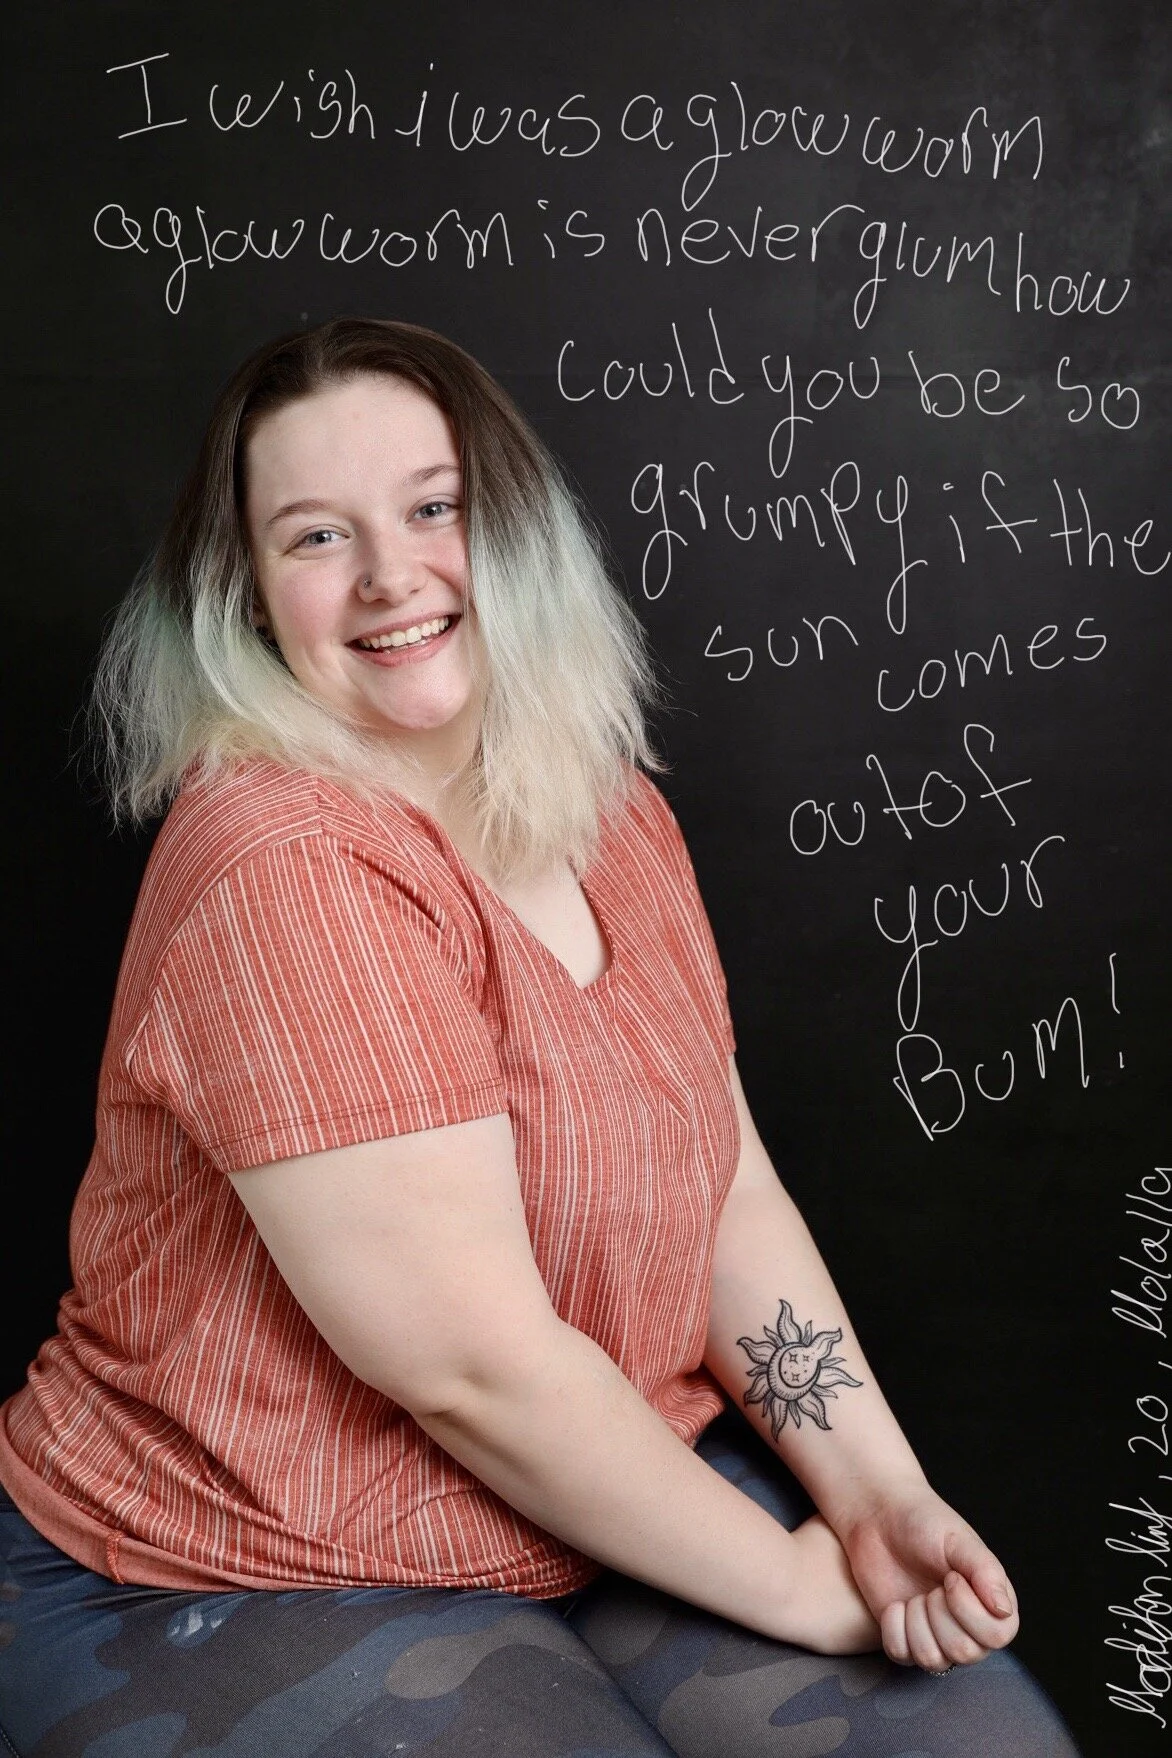 I wish i was a glow worm
a glow worm is never glum how
could you be so
grumpy if the
sun comes
out of
your
Bum!
20